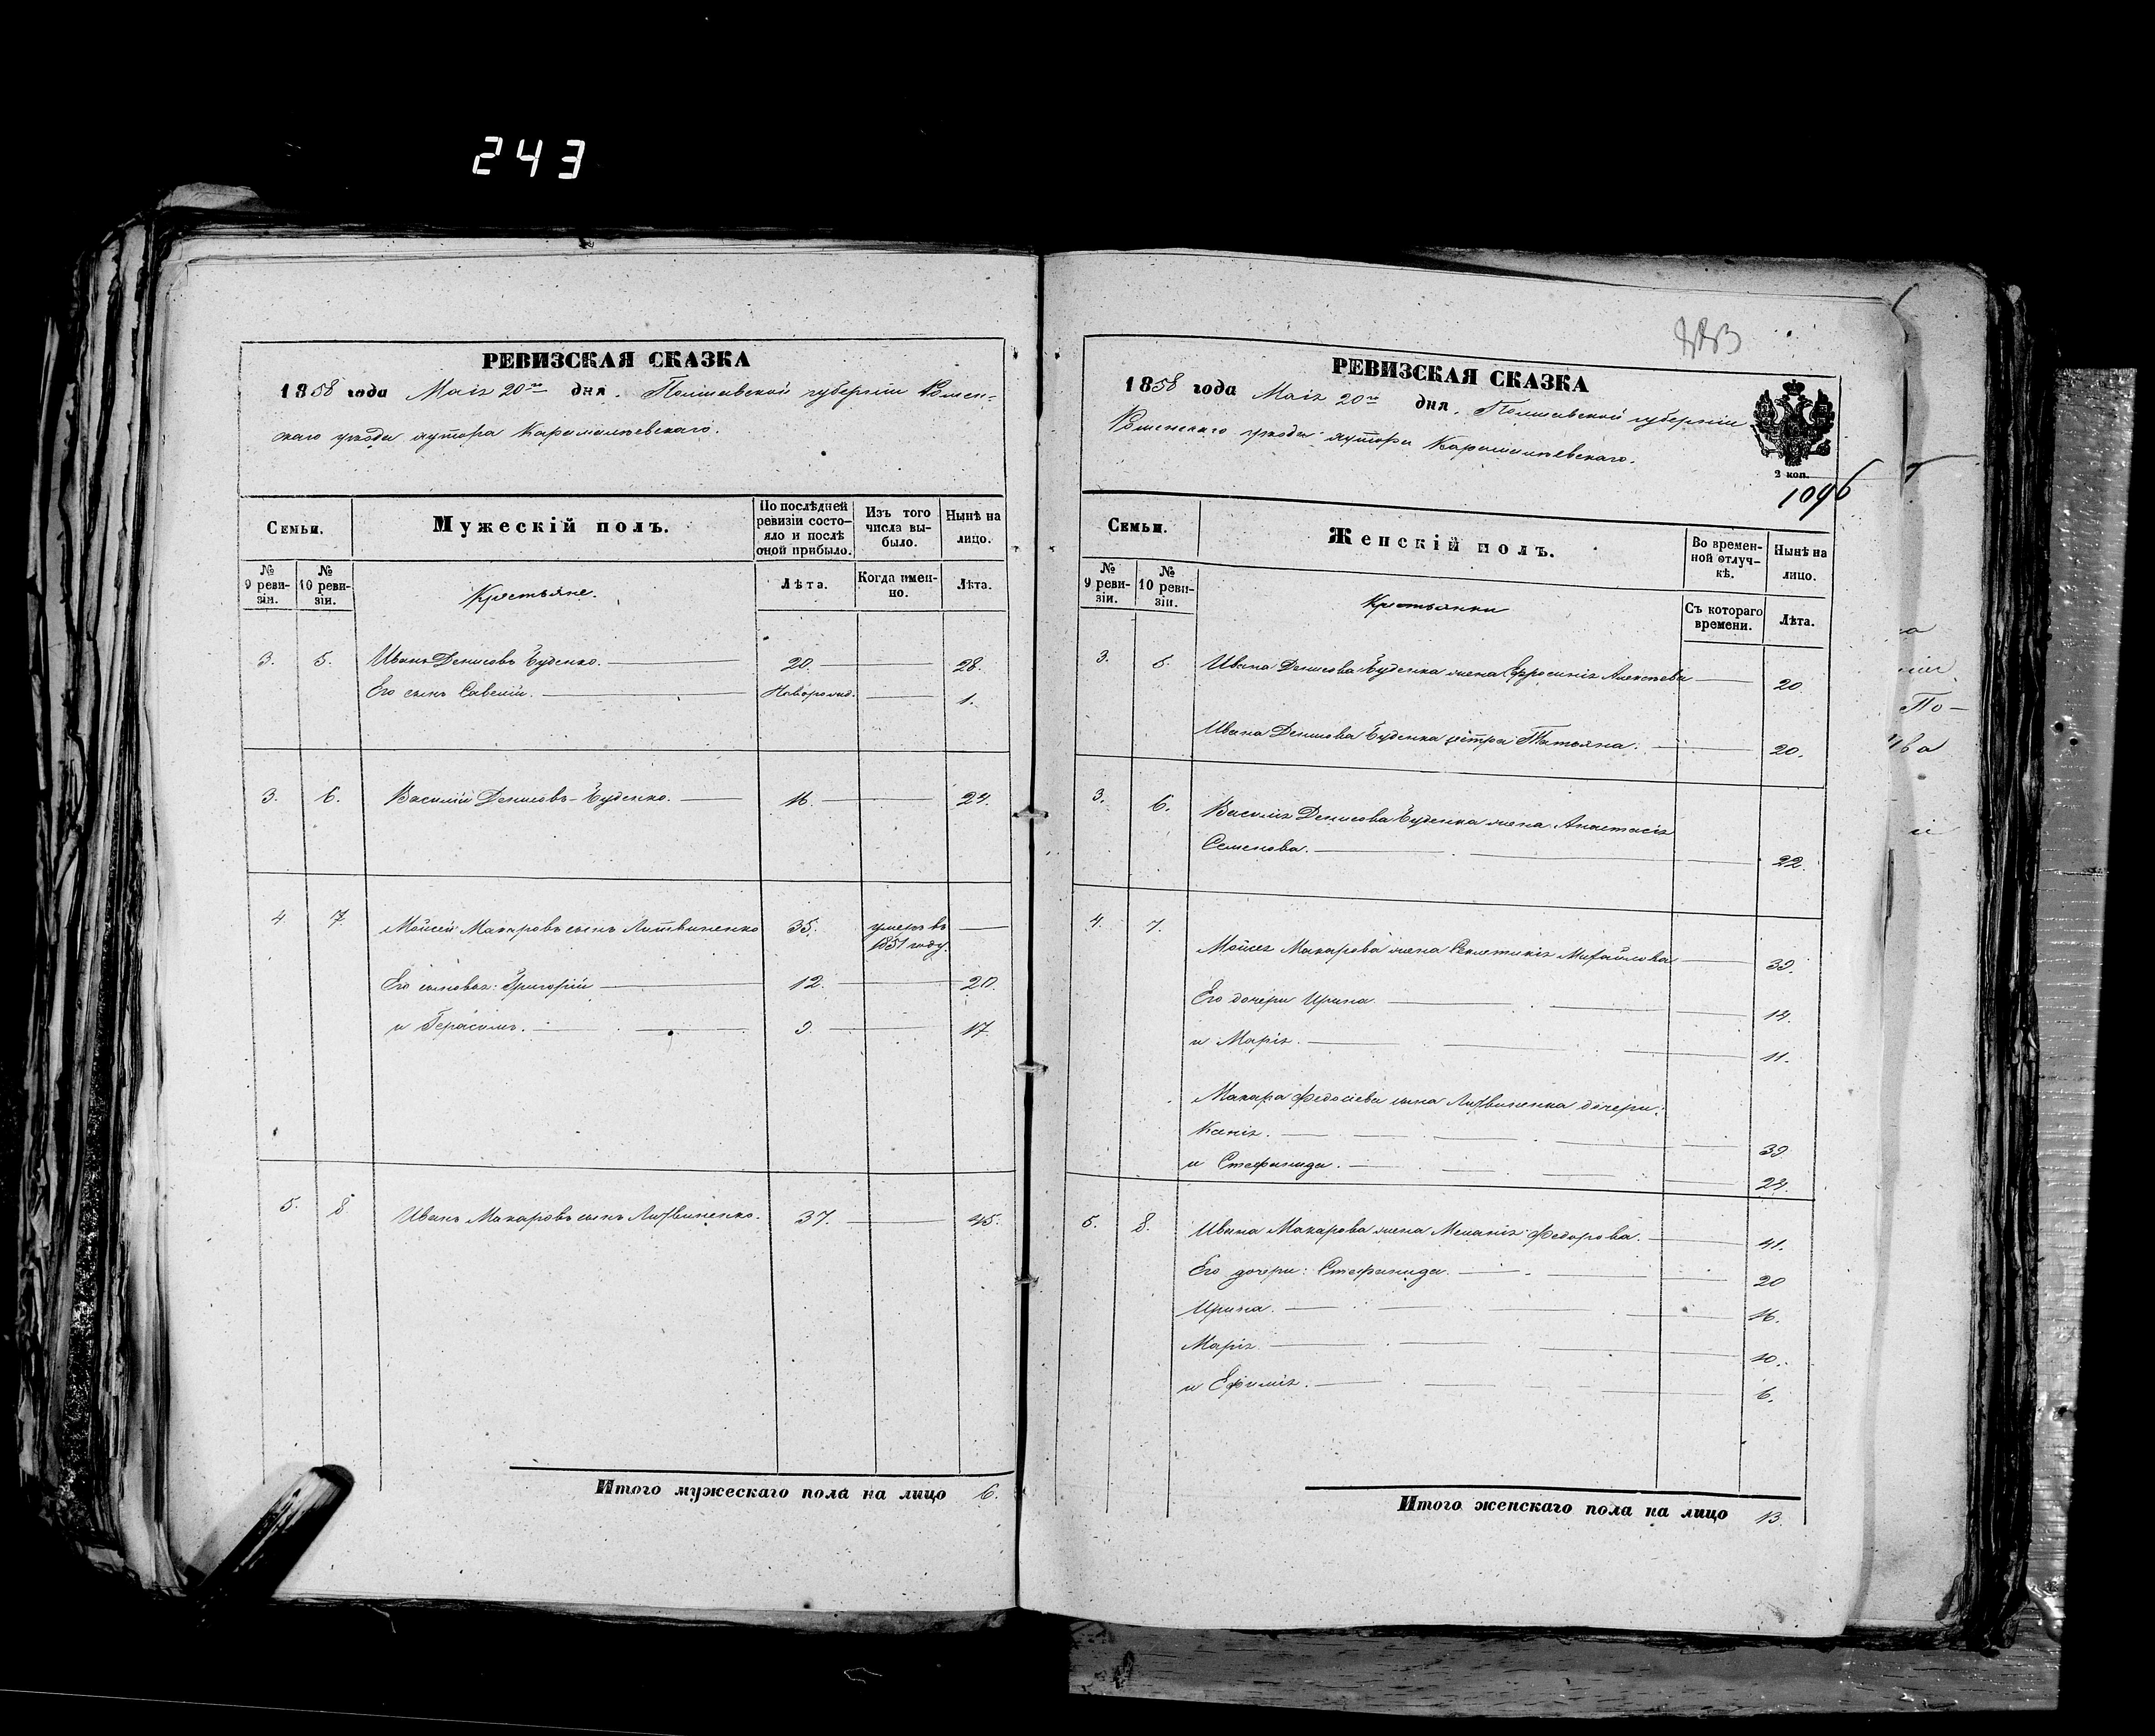 243
РЕВИЗСКАЯ СКАЗКА
1858 года Маія 20го дня. Полтавской губерніи Ромен-
скаго уѣзда хутора
Семьи.
Мужескій полъ.
По послѣдней ревизіи состояло и послѣ оной прибыло.
Изъ того числа выбыло.
Нынѣ на лицо.
№ 9 ревизіи.
№ 10 ревизіи.
Крестьяне.
Лѣта.
Когда именно.
Лѣта.
3. 5. Иванъ Денисовъ 20. 28.
Его сынъ Савелій. Новорожд. 1.
3. 6. Василій Денисовъ 16. 24.
4 7 Мойсей Макаровъ сынъ Литвиненко 35. умеръ въ
1851 году.
Его сыновья: Григорій 12. 20.
и Герасимъ. 9. 17.
5. 8 Иванъ Макаровъ сынъ Литвиненко. 37. 45.
Итого мужескаго пола на лицо 6.
РЕВИЗСКАЯ СКАЗКА
1858 года Маія 20го дня. Полтавской губерніи
Роменскаго уѣзда хутора
2 коп.
1096
Семьи.
Женскій полъ.
Во временной отлучкѣ.
Нынѣ на лицо.
№ 9 ревизіи.
№ 10 ревизіи.
Крестьянки
Съ котораго времени.
Лѣта.
3. 5. Ивана Денисова жена Ефросинія Алексѣева 20.
Ивана Денисова сестра Татьяна. 20.
3. 6. Василія Денисова жена Анастасія
Семенова. 22.
4. 7. Мойсея Макарова жена Секлетикія Михайлова 39.
Его дочери Ирина. 14.
и Марія. 11.
Макара Федосіева сына Литвиненка дочери:
Ксенія. 39
и Стефанида. 24.
5. 8. Ивана Макарова жена Меланія Федорова. 41.
Его дочери: Стефанида. 20
Ирина. 16.
Марія. 10.
и Ефимія. 6.
Итого женскаго пола на лицо 13.